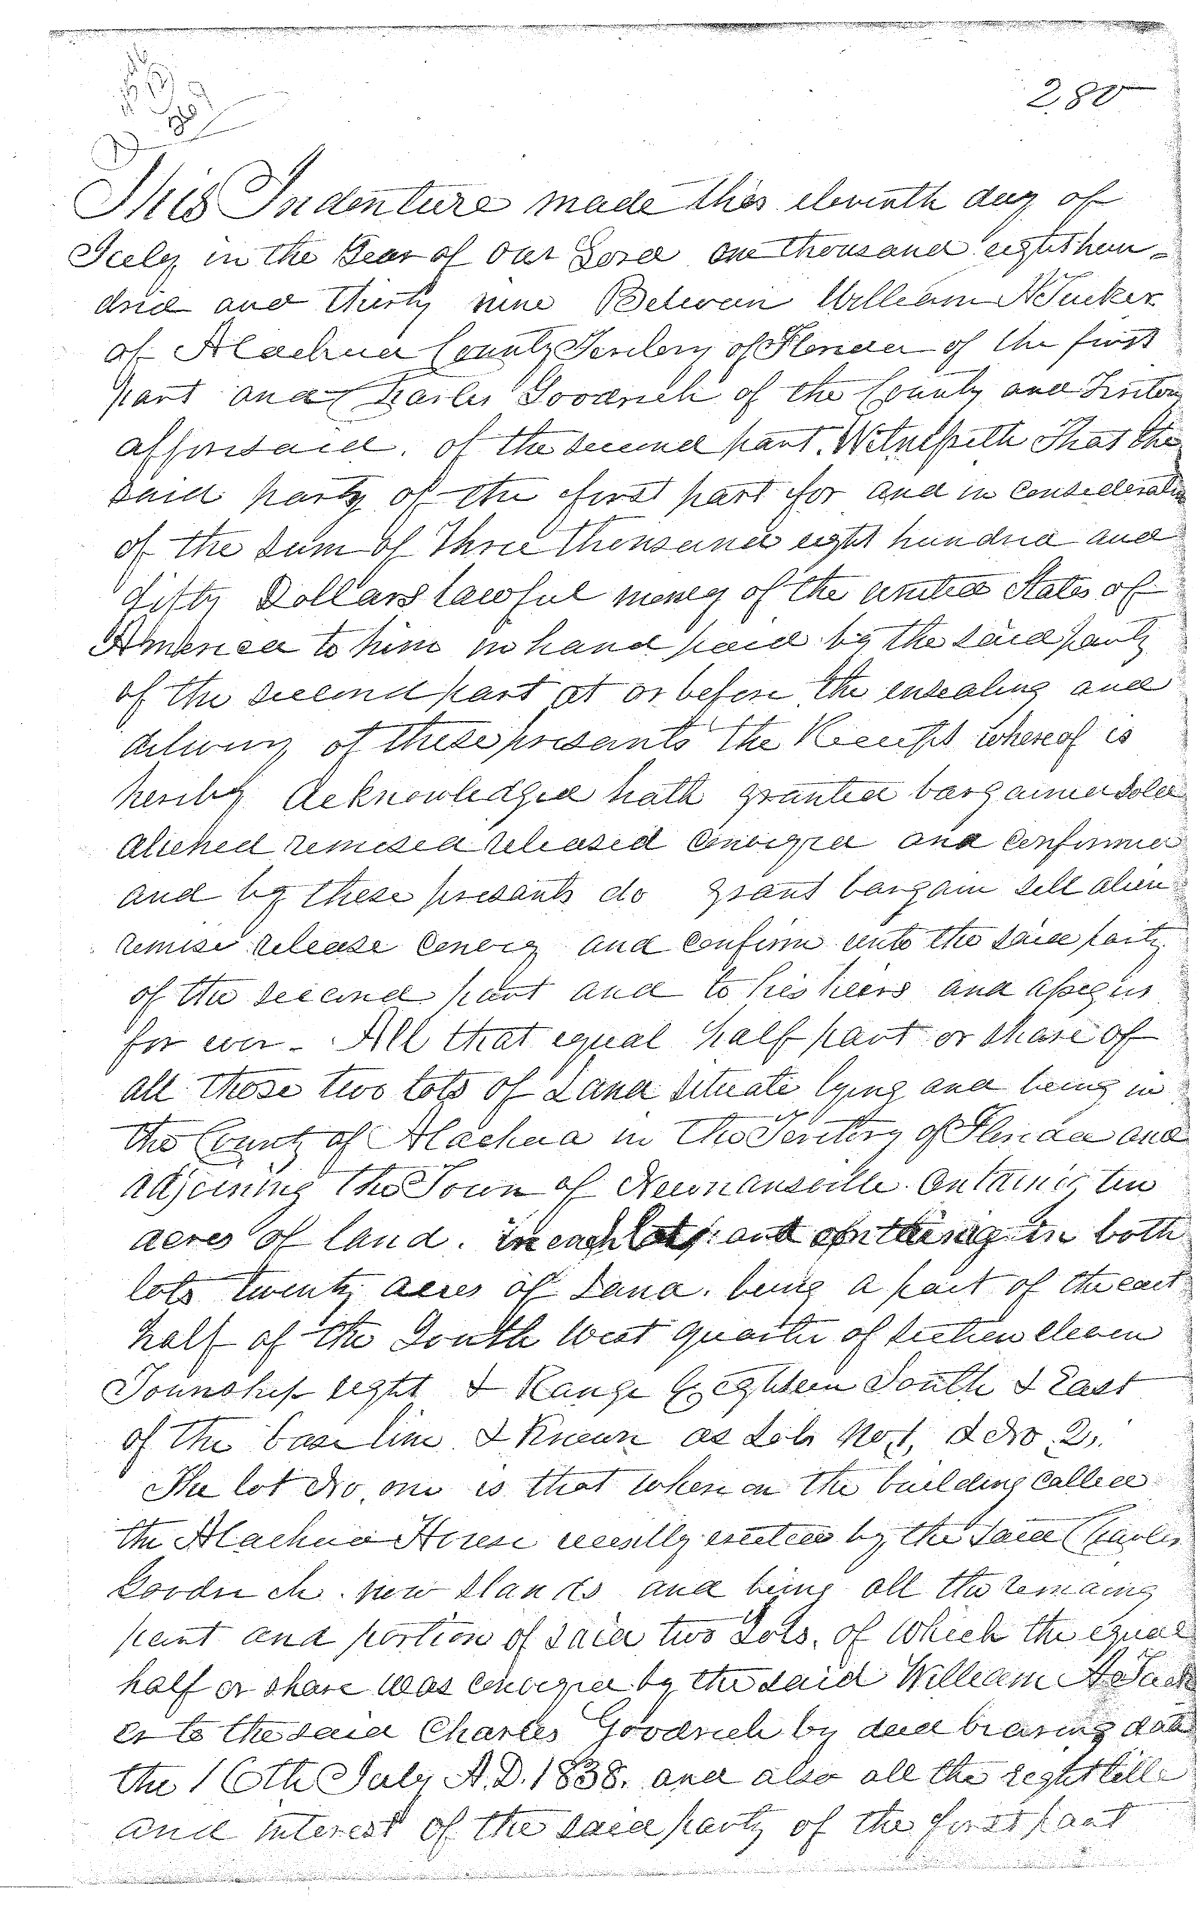 280
This Indenture made this eleventh day of
July in the Year of our Lord one thousand eight hun-
dred and thirty nine Between William H Tucker
of Alachua County Teritory of Florida of the first
part and Charles Goodrich of the County and Teritory
afforesaid. of the second part. Witnesseth That the
said party of the first part for and in consideration
of the sum of Three thousand eight hundred and
fifty Dollars lawful money of the united States of
America to him in hand paid by the said party
of the second part at or before the ensealing and
delivery of these presants the Receipt whereof is
hereby Acknowledged hath granted bargained sold
aliened remised released conveyed and confirmed
and by these presants do grant bargain sell alien
remise release convey and confirm unto the said party
of the second part and to his heirs and assigns
for ever - All that equal half part or share of
all those two lots of Land situate lying and being in
the County of Alachua in the Teritory of Florida and
adjoining the Town of Newnansville. Containig ten
acres of land. in each lot and containing in both
lots twenty acres of Land. being a part of the east
half of the South West quarter of section eleven
Township eight & Range Eighteen South & East
of the base line & Known as Lots No 1, & No 2,.
The lot No. one is that where on the building called
the Alachua House recently erected by the said Charles
Goodrich. now stands and being all the remaing
part and portion of said two Lots, of which the equal
half or share was conveyed by the said William H Tuck
er to the said Charles Goodrich by deed bearing date
the 16th July A.D. 1838. and also all the right title
and interest of the said party of the first part